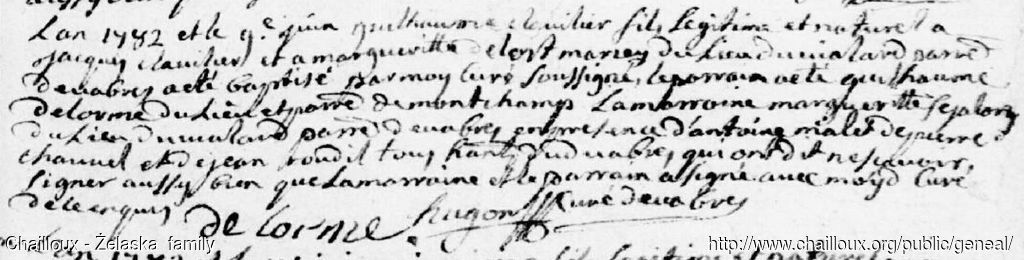 Lan 1782 et le 9e juin guilhaume clavilier fils Legitime et naturel a
jacques clavilier et a margueritte delort mariez du Lieu du vialard parred
devabres a eté baptisé par moy Curé soussigné, le parrain a eté guilhaume
delorme du Lieu et parred de montchamp Lamarraine margueritte
du Lieu du vialard parred devabres en presence d'antoine mialet de pierre
chauvel et de jean tous hants dud vabres qui ont dit ne scavoir
Signer aussy bien que Lamarraine et le parrain a signé avec moyd Curé
de ce enquis
delorme. hugon Curé devabres
Lan 1782 fils Legitime et naturel
Chailloux - Żelaska family
http://www.chailloux.org/public/geneal/